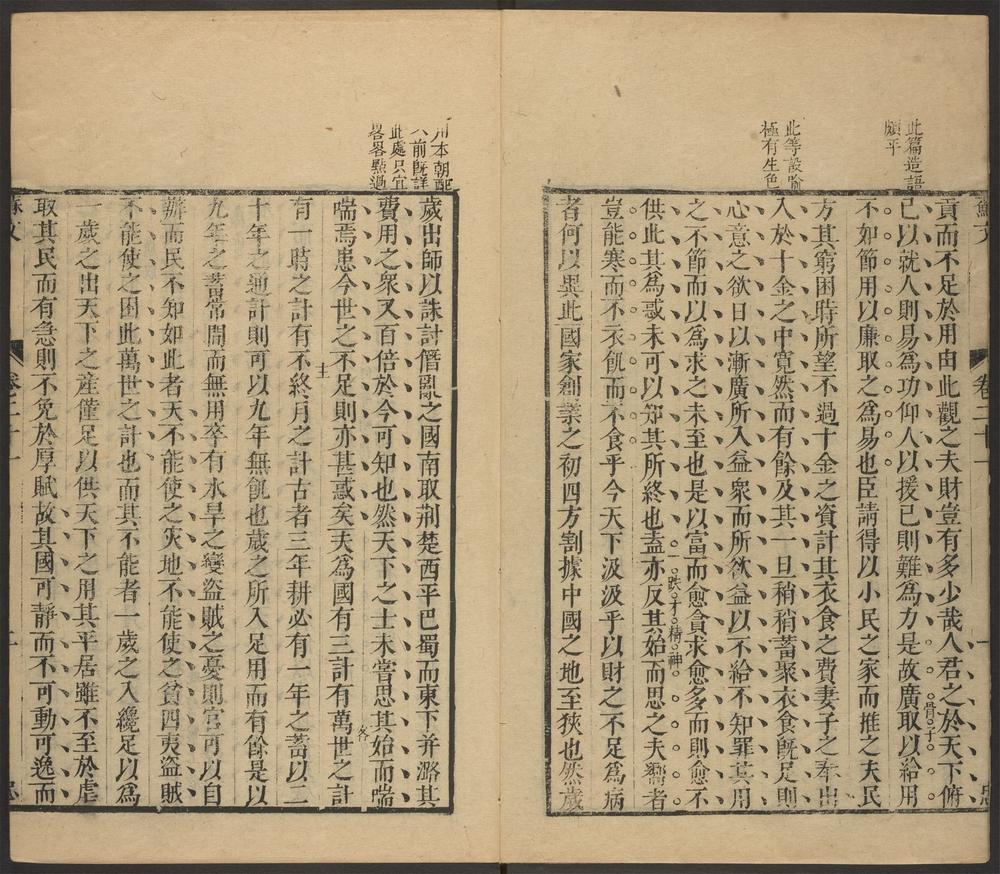 此篇造語
頗平
此等設喻
極有生色
蘇文
卷二十一
貢而不足於用由此觀之夫財豈有多少哉人君之於天下俯
骨子
己以就人則易爲功仰人以援己則難爲力是故廣取以給用
不如節用以廉取之爲易也臣請得以小民之家而推之夫民
方其窮困時所望不過十金之資計其衣食之費妻子之奉出
入於十金之中寛然而有餘及其一旦稍稍蓄聚衣食旣足則
心意之欲日以漸廣所入益衆而所欲益以不給不知罪其用
之不節而以爲求之未至也是以富而愈貪求愈多而財愈不
一跌才精神
供此其爲惑未可以知其所終也盍亦反其始而思之夫嚮者
豈能寒而不衣飢而不食乎今天下汲汲乎以財之不足爲病
者何以異此國家創業之初四方割據中國之地至狹也然歲
用本朝配
入前旣詳
此處只宜
畧畧點過
歲出師以誅討僭亂之國南取荆楚西平巴蜀而東下并潞其
費用之衆又百倍於今可知也然天下之士未嘗思其始而惴
惴焉患今世之不足則亦甚惑矣夫爲國有三計有萬世之計
主
有一時之計有不終月之計古者三年耕必有一年之蓄以三
十年之通計則可以九年無飢也歲之所入足用而有餘是以
九年之蓄常閒而無用卒有水旱之變盜賊之憂則官可以自
辦而民不知如此者天不能使之災地不能使之貧四夷盜賊
不能使之困此萬世之計也而其不能者一歲之入纔足以爲
一歲之出天下之產僅足以供天下之用其平居雖不至於虐
取其民而有急則不免於厚賦故其國可靜而不可動可逸而
蘇文
卷二十一